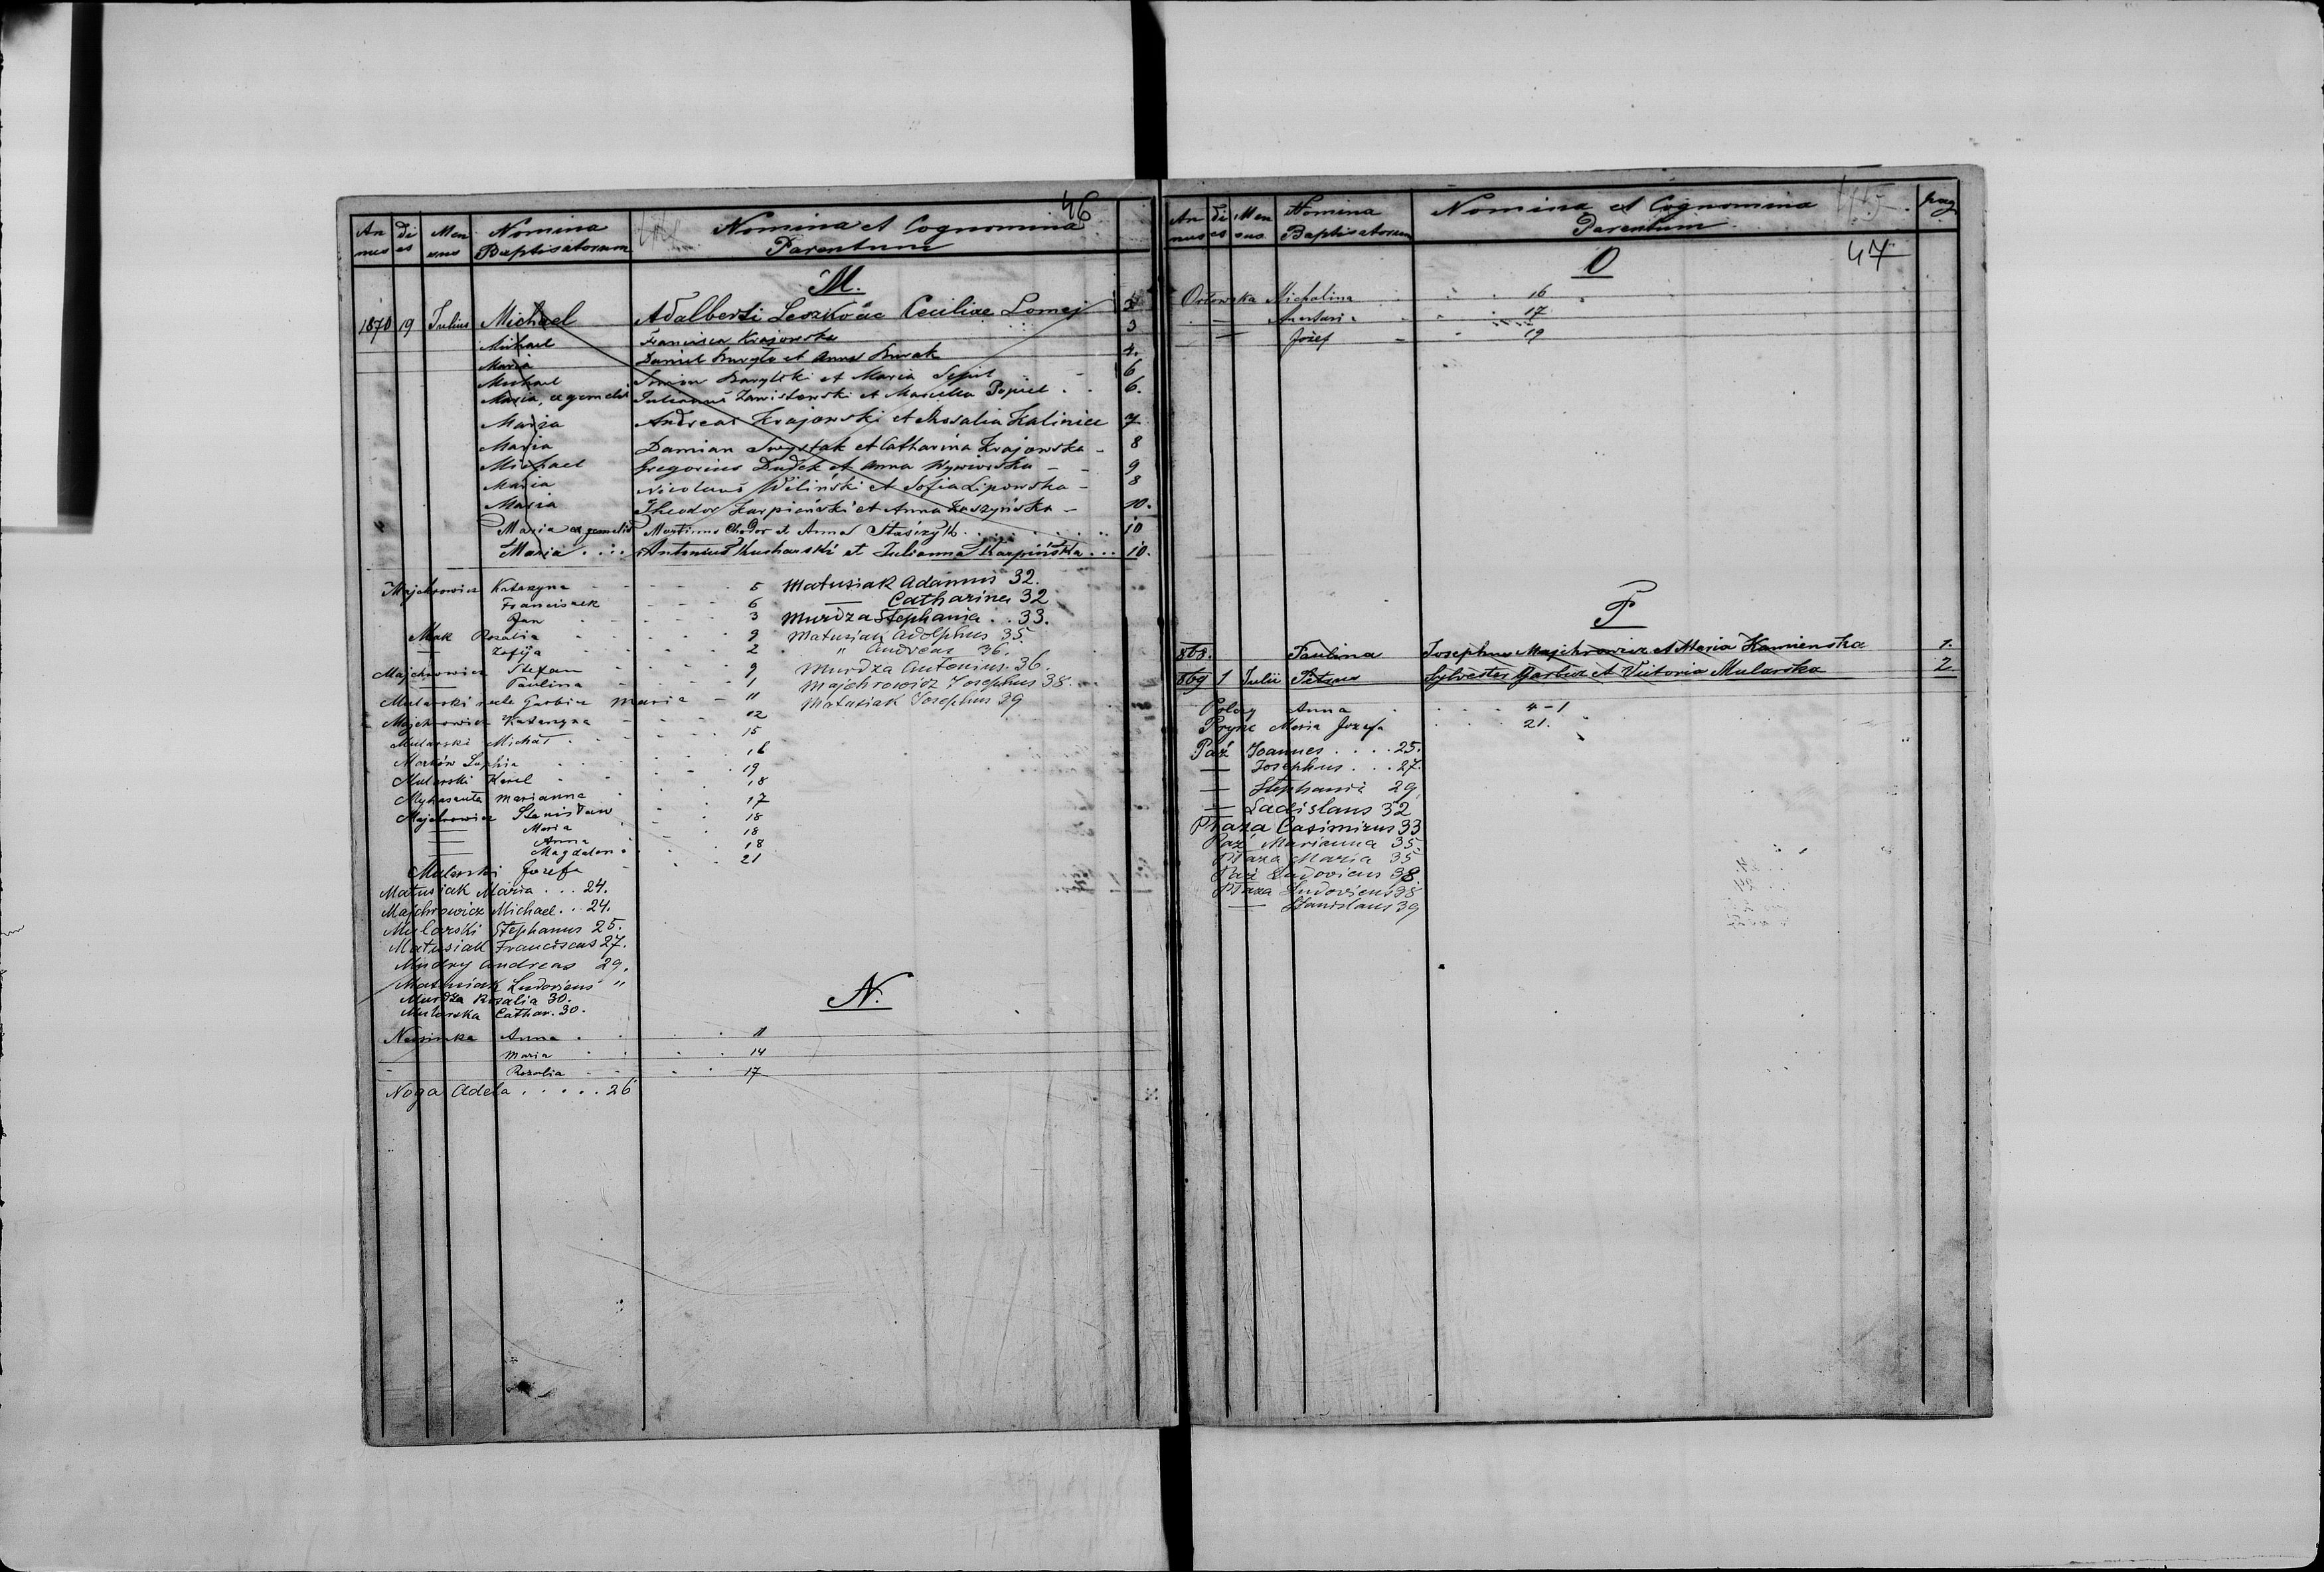 46
An nus | di es | Men sus | Nomina Baptisatorum | Nomina et Cognomina Parentum
M.
1870 19 Julius Michael Adalberti Leszkość Ceciliae Lomej 3
Michael Francisca Krajowska 3
Maria Daniel Buryło et Anna Burak 4.
Michael Simion Barylski et Maria 6
Maria, ex gemelis Julianus Zawistowski et Marcella Popiel 6.
Maria Andreas Krajowski et Rosalia Kalinicz 7
Maria Damian Swystak et Catharina Krajowska - 8
Michael Gregorius Dudek et Anna 9
Maria Nicolaus Wiliński et Sofia Lipowska - 8
Maria Theodor Karpiński et Anna Kaszyńska - 10.
Maria ex gemelis Martinus Chodor et Anna Staszyk 10
Maria Antonius Kucharski et Julianna Karpińska 10.
Majchrowicz Katarzyna 5 Matusiak Adamus 32.
Franciszek 6 — Catharina 32
Jan 3 Murdza Stephania 33.
Mak Rozalia 9 Matusiak Adolphus 35
— Zofija 2 " Andreas 36.
Majchrowicz Stefan 9 Murdza Antonius 36.
— Paulina 1 Majchrowicz Josephus 38.
Mularski recte Garbicz Maria - 11 Matusiak Josephus 39
Majchrowicz Katarzyna 12
Mularski Michał 15
Marków Zophia 16
Mularski Karol 19
Marianna 18
Majchrowicz Stanisław 17
— Maria 18
— Anna 18
— Magdalena 18
Mularski Józefa 21
Matusiak Maria . . . 24.
Majchrowicz Michael . . . 24.
Mularski Stephanus 25.
Matusiak Franciscus 27.
Mudry Andreas 29.
Matusiak Ludovicus "
Murdza Rosalia 30.
Mularska Cathar. 30.
N.
Anna 11
Maria 14
Rozalia 17
Noga Adela . . . . . 26
An nus | di es | Men sus | Nomina Baptisatorum | Nomina et Cognomina Parentum | pag
47
O
Orłowska Michalina 16
— Anastasia 17
— Józef 19
P
868. Paulina Josephus Majchrowicz et Maria Kamienska 1.
869 1 Julii Petrus Sylvester Garbicz et Victoria Mularska 2
Anna 4-1
Maria Jozefa 21.
Paź Joannes . . . . 25.
— Josephus . . . 27.
— Stephania 29
— Ladislaus 32
Płaza Casimirus 33
Paź Marianna 35
Płaza Maria 35
Paź Ludovicus 38
Płaza Ludovicus 38
— Stanislaus 39